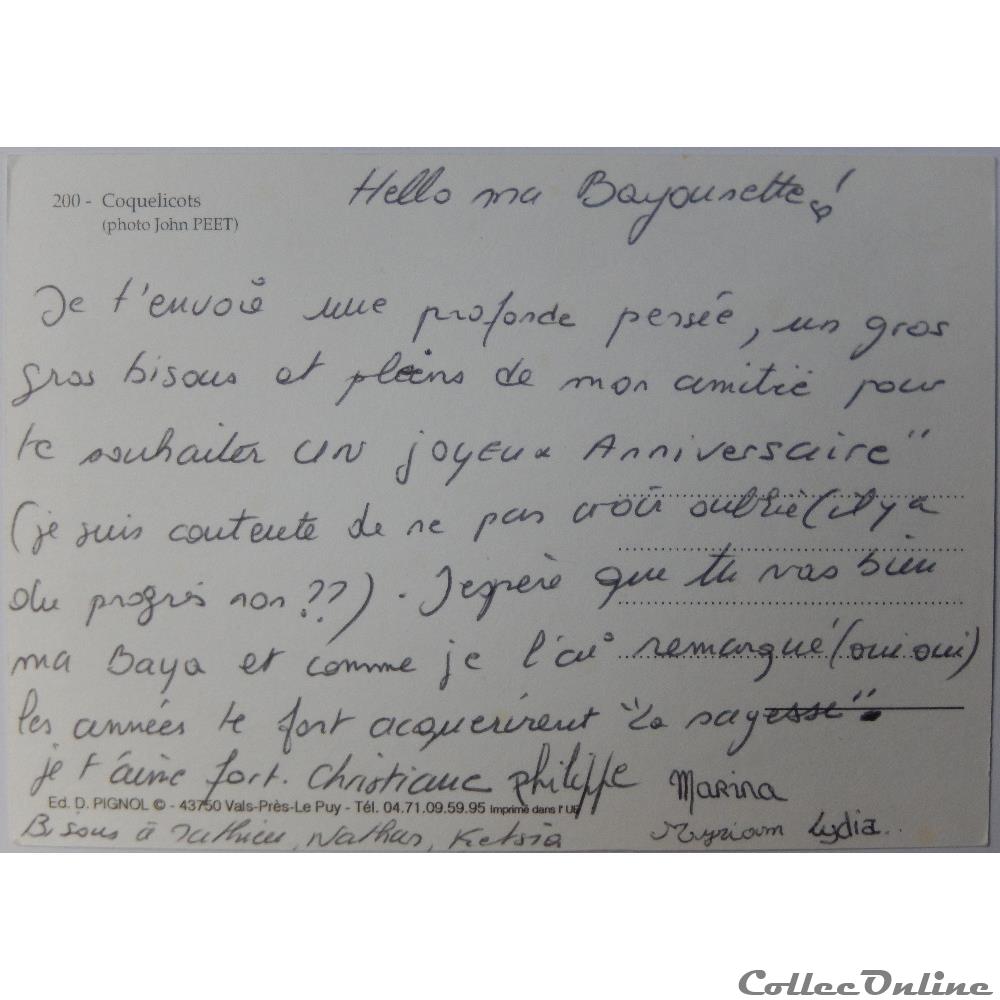 200 - Coquelicots
(photo John PEET)
Hello ma Bayounette!
Je t'envoie une profonde pensée, un gros
gros bisous et pleins de mon amitié pour
te souhaiter UN JOYEUX Anniversaire"
(je suis contente de ne pas avoir oublié (il y a
du progrès non??). J'espère que tu vas bien
ma Baya et comme je l'ai remarqué (oui oui)
les années te font acquerirent "la sagesse".
je t'aime fort. Christiane Philippe Marina
Ed. D. PIGNOL © - 43750 Vals-Près-Le Puy - Tél. 04.71.09.59.95 Imprimé dans l'UE
Bisous à Mathieu, Nathan, Ketsia Myriam Lydia..
CollecOnline